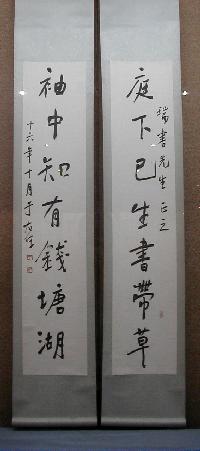 庭下已生書帶草
瑞書先生正之
袖中知有錢塘湖
十六年十月于右任